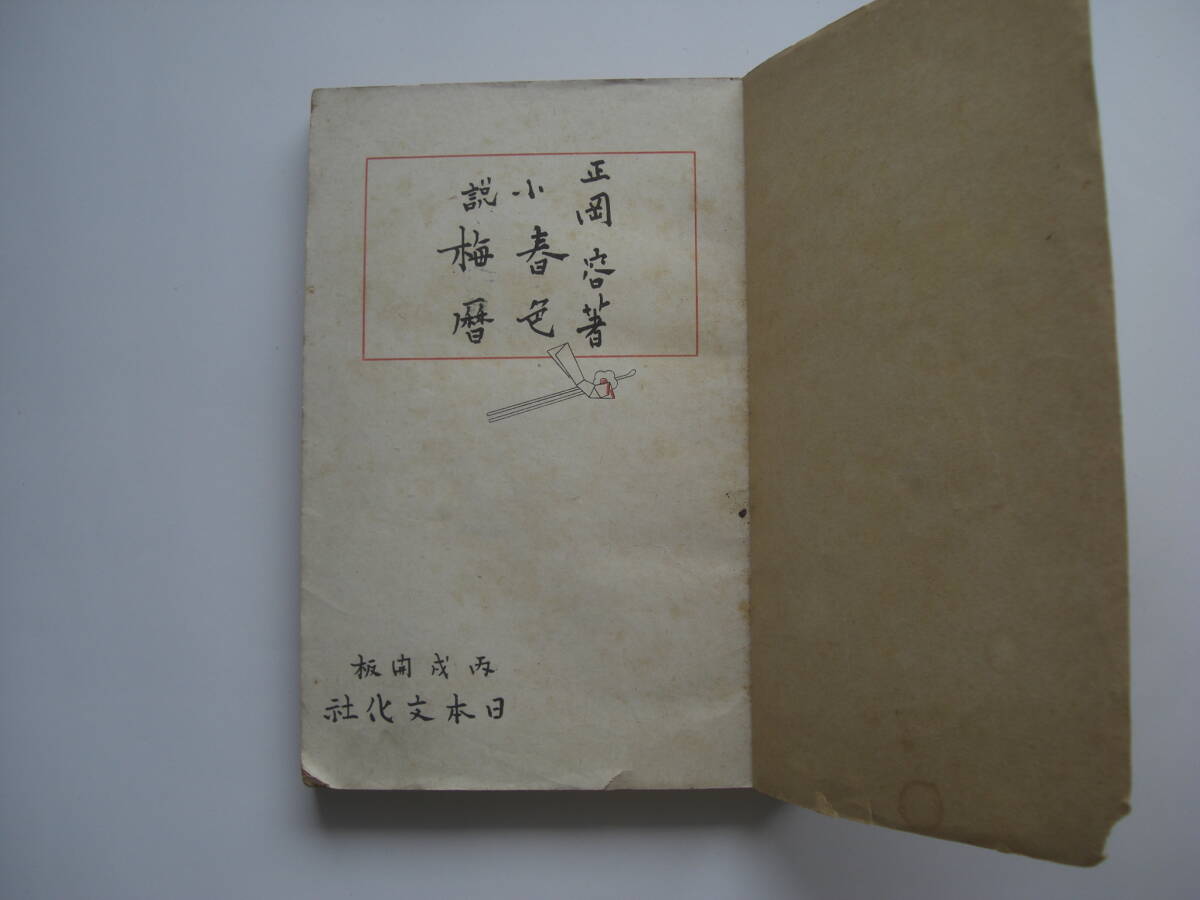 正岡容著
小春色
説梅暦
丙戌開板
日本文化社